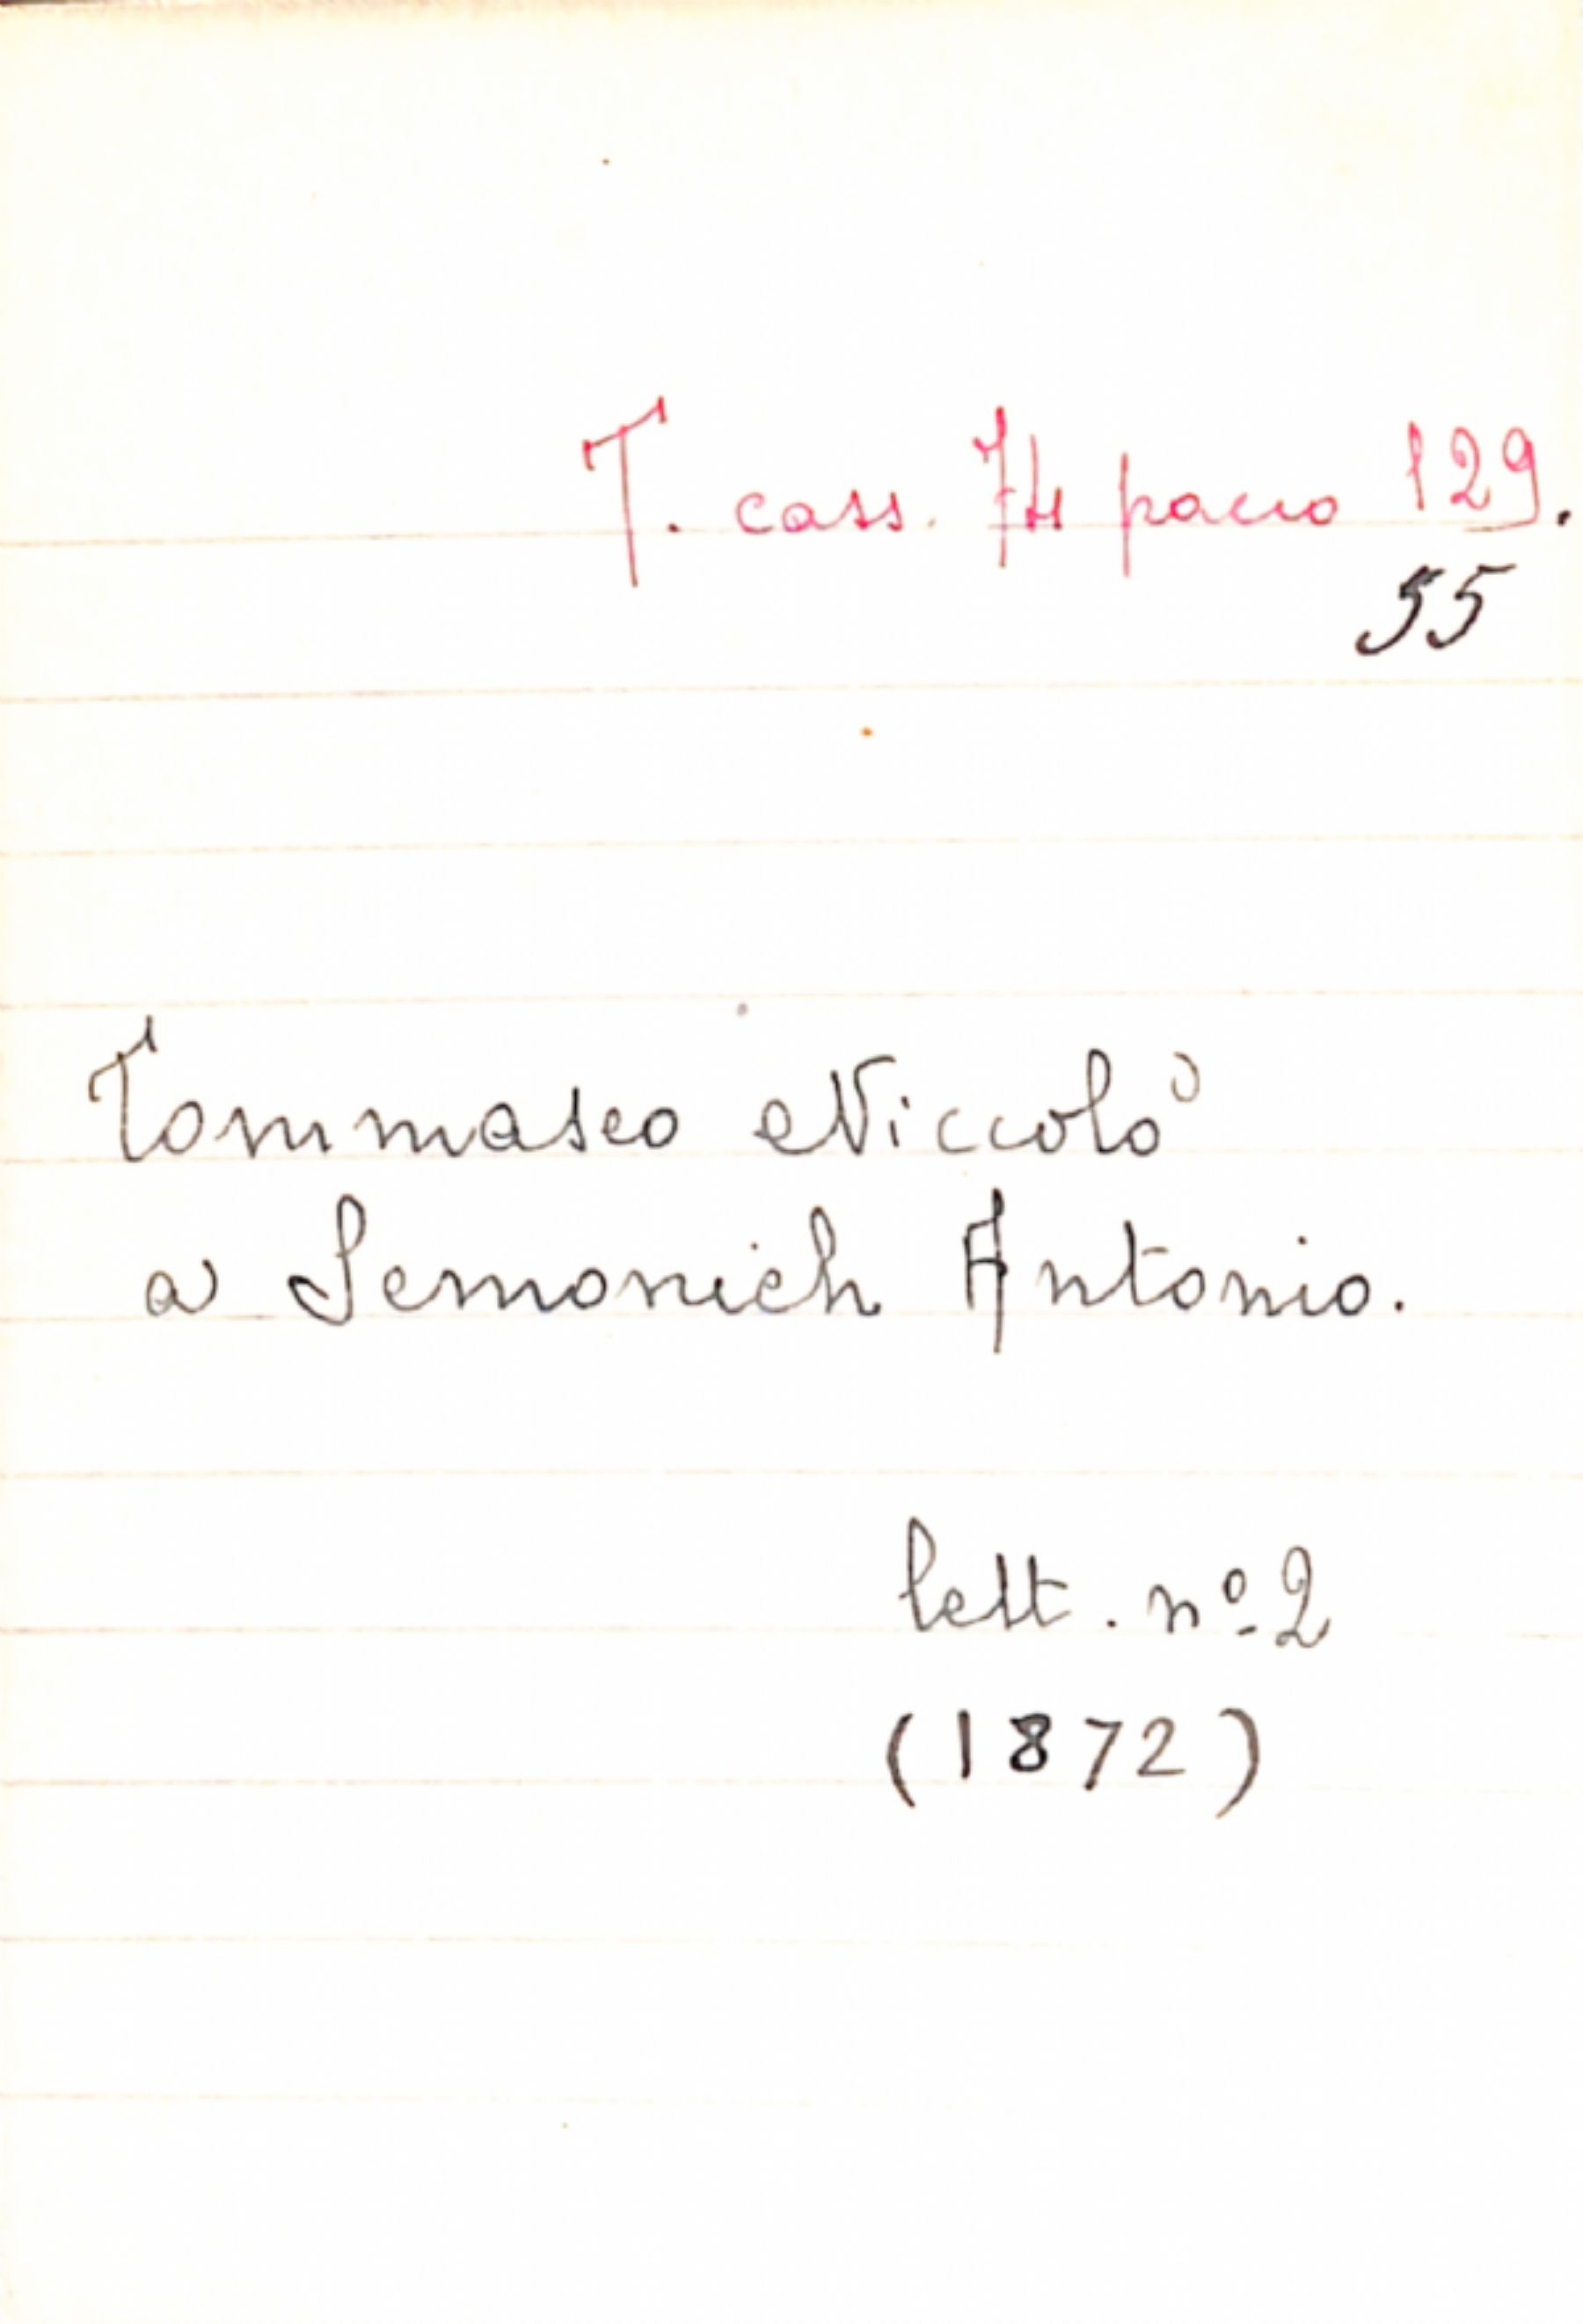 T. cass. 74 pacco 129.
55
Tommaseo Niccolò
a Semonich Antonio.
lett. nº 2
(1872)